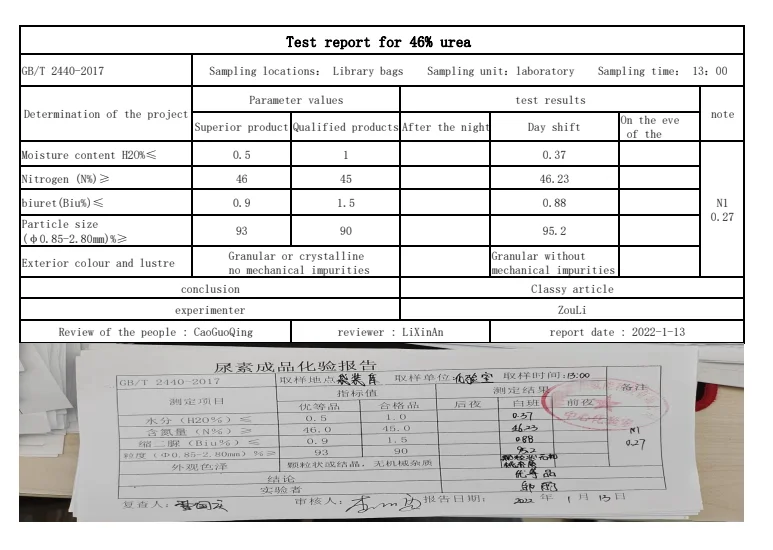 Test report for 46% urea
GB/T 2440-2017 Sampling locations： Library bags Sampling unit：laboratory Sampling time： 13：00
Determination of the project Parameter values test results note
Superior product Qualified products After the night Day shift On the eve of the
Moisture content H2O%≤ 0.5 1 0.37
Nitrogen (N%)≥ 46 45 46.23
biuret(Biu%)≤ 0.9 1.5 0.88 N1
0.27
Particle size
(φ0.85-2.80mm)%≥ 93 90 95.2
Exterior colour and lustre Granular or crystalline no mechanical impurities Granular without mechanical impurities
conclusion Classy article
experimenter ZouLi
Review of the people : CaoGuoQing reviewer : LiXinAn report date : 2022-1-13
尿素成品化验报告
GB/T 2440-2017 取样地点 袋装库 取样单位 化验室 取样时间:13:00
测定项目 指标值 测定结果 备注
优等品 合格品 后夜 白班 前夜
水分（H2O%）≤ 0.5 1.0 0.37
含氮量（N%）≥ 46.0 45.0 46.23 N1
缩二脲（Biu%）≤ 0.9 1.5 0.88 0.27
粒度（Φ0.85-2.80mm）%≥ 93 90 95.2
外观色泽 颗粒状或结晶，无机械杂质
结论 优等品
实验者
复查人： 审核人： 报告日期： 2022 年 1 月 13 日